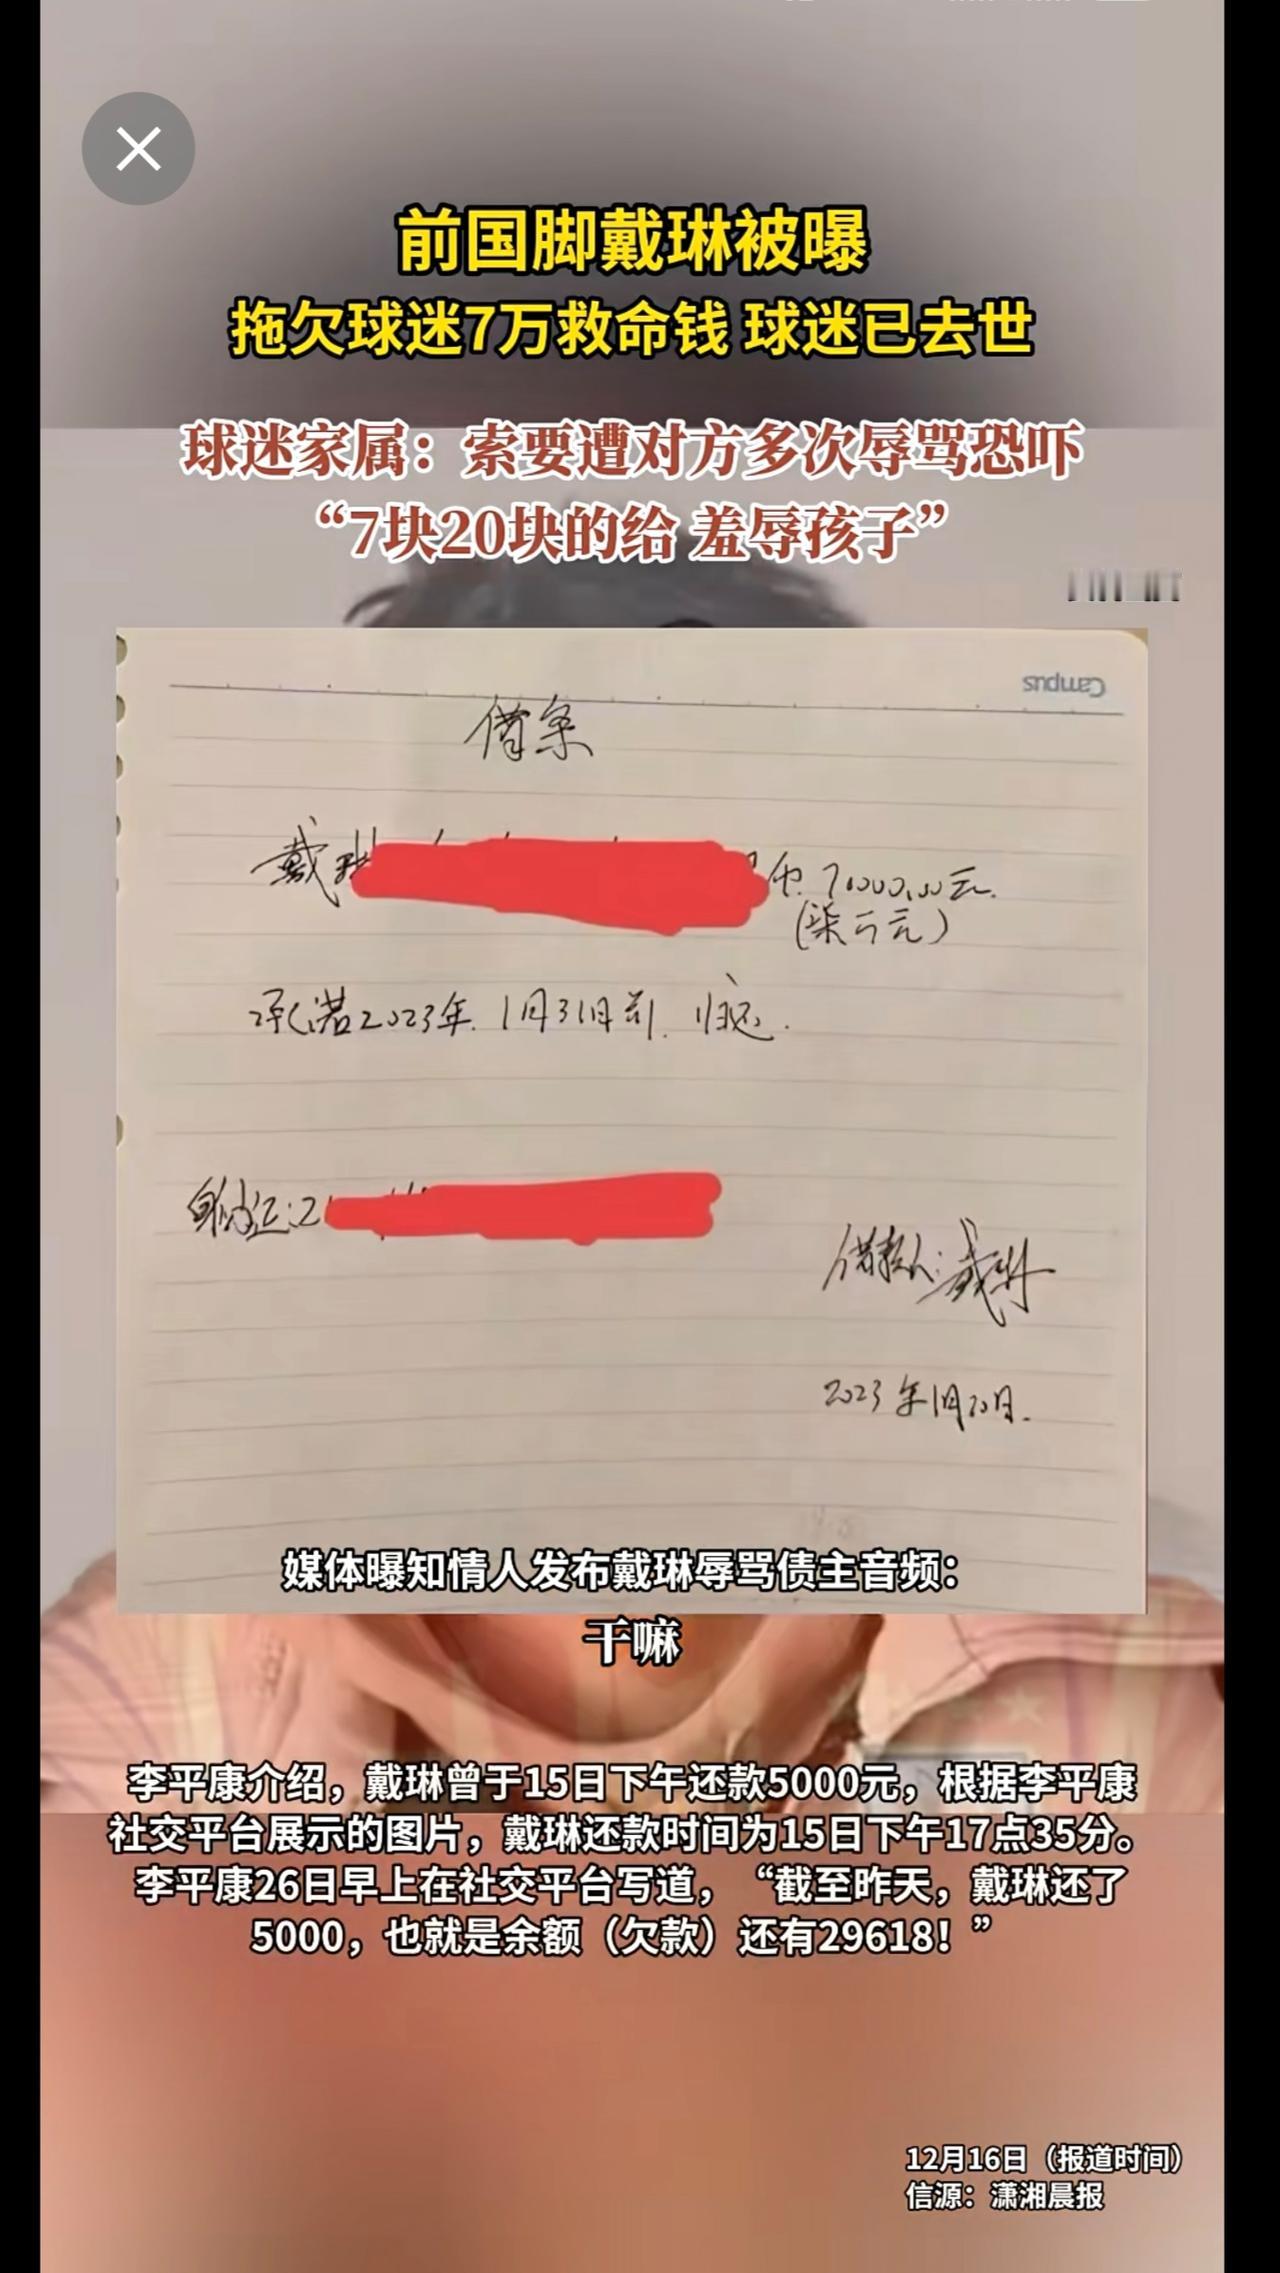 前国脚戴琳被曝
拖欠球迷7万救命钱 球迷已去世
球迷家属：索要遭对方多次辱骂恐吓
“7块20块的给 羞辱孩子”
Campus
借条
戴琳
币 70000.00元.
(柒万元)
承诺2023年.1月31日前.归还.
身份证:2
借款人:戴琳
2023年1月20日.
媒体曝知情人发布戴琳辱骂债主音频：
干嘛
李平康介绍，戴琳曾于15日下午还款5000元，根据李平康
社交平台展示的图片，戴琳还款时间为15日下午17点35分。
李平康26日早上在社交平台写道，“截至昨天，戴琳还了
5000，也就是余额（欠款）还有29618！”
12月16日（报道时间）
信源：潇湘晨报